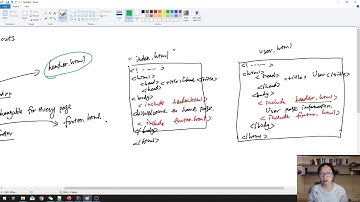 out1
header.html
changable for every page
footer.html
"index.html"
<! - - - - >
<html>
<head> <title> Index </title>
</head>
<body>
< include header.html>
<div>welcome to home page.
< include footer.html>
</body>
</html>
user.html
<! - - - - >
<html>
<head> <title> User </title>
</head>
<body>
< include header.html>
User page information.
< include footer.html>
</body>
</html>